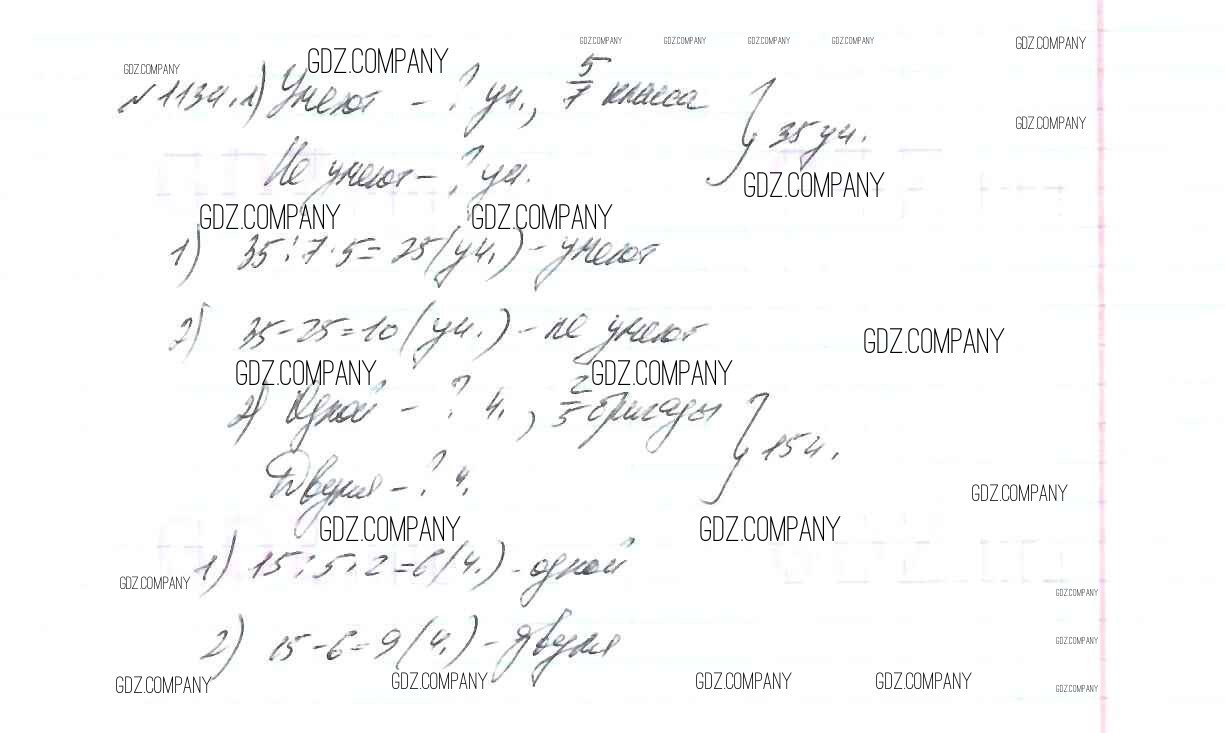 GDZ.COMPANY GDZ.COMPANY GDZ.COMPANY GDZ.COMPANY GDZ.COMPANY
GDZ.COMPANY GDZ.COMPANY
№1134.1) Умеют - ? уч., 5/7 класса } 35 уч.
GDZ.COMPANY
Не умеют - ? уч.
GDZ.COMPANY
GDZ.COMPANY GDZ.COMPANY
1) 35:7·5=25(уч.) - умеют
2) 35-25=10(уч.) - не умеют
GDZ.COMPANY
GDZ.COMPANY GDZ.COMPANY
2) Одной - ? ч., 2/5 бригады } 15 ч.
Двумя - ? ч.
GDZ.COMPANY
GDZ.COMPANY GDZ.COMPANY
1) 15:5·2=6(ч.) - одной
GDZ.COMPANY GDZ.COMPANY
2) 15-6=9(ч.) - двумя
GDZ.COMPANY
GDZ.COMPANY GDZ.COMPANY GDZ.COMPANY GDZ.COMPANY GDZ.COMPANY